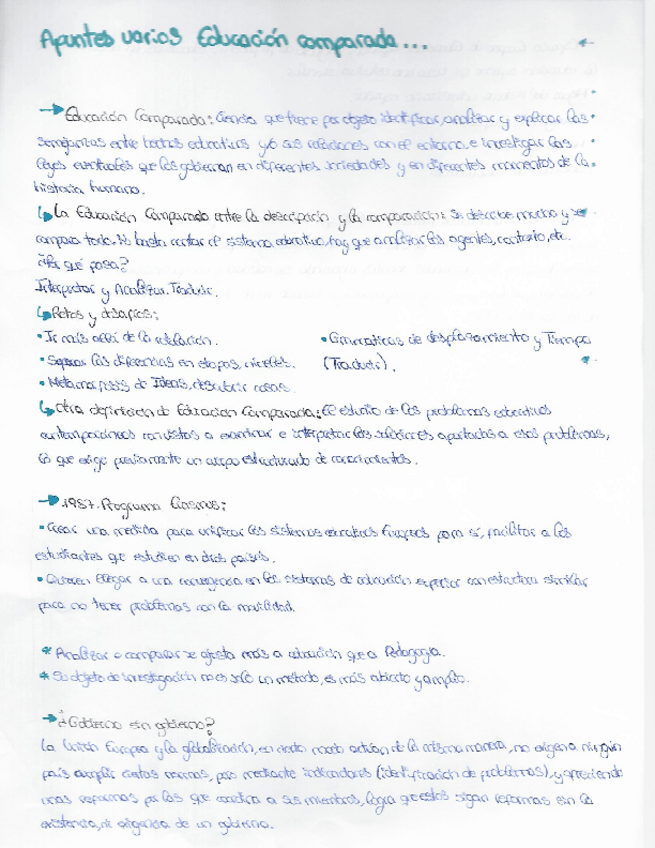 Apuntes varios Educación comparada...
→ Educación Comparada: Ciencia que tiene por objeto identificar, analizar y explicar las
semejanzas entre hechos educativos y/o sus relaciones con el entorno e investigar las
leyes eventuales que los gobiernan en diferentes sociedades y en diferentes momentos de la
historia humana.
↳ La Educación Comparada entre la descripción y la comparación: Se describe mucho y se
compara todo. No basta contar el sistema educativo, hay que analizar los agentes, contexto, etc.
¿Por qué pasa?
Interpretar y Analizar. Traducir.
↳ Retos y desafíos:
• Ir más allá de la
• Gramáticas de desplazamiento y Tiempo
• Superar las diferencias en etapas, niveles.
(Traducir).
• Metamorfosis de Ideas, descubrir cosas.
↳ Otra definición de Educación Comparada: El estudio de los problemas educativos
contemporáneos con vistas a examinar e interpretar las soluciones aportadas a esos problemas,
lo que exige previamente un cuerpo estructurado de conocimientos.
→ 1987. Programa Erasmus:
• Crear una medida para unificar los sistemas educativos Europeos para sí, facilitar a los
estudiantes que estudien en otros países.
• Quieren llegar a una convergencia en los sistemas de educación superior con estructura similar
para no tener problemas con la movilidad.
* Analizar o comparar se ajusta más a educación que a Pedagogía.
* Su objeto de investigación no es sólo un método, es más abierto y amplio.
→ ¿Gobierno sin gobierno?
La Unión Europea y la globalización, en cierto modo actúan de la misma manera, no exigen a ningún
país cumplir ciertas normas, pero mediante indicadores (identificación de problemas), y ofreciendo
unas reformas por las que a sus miembros, logra que estos sigan reformas sin la
existencia, ni exigencia de un gobierno.